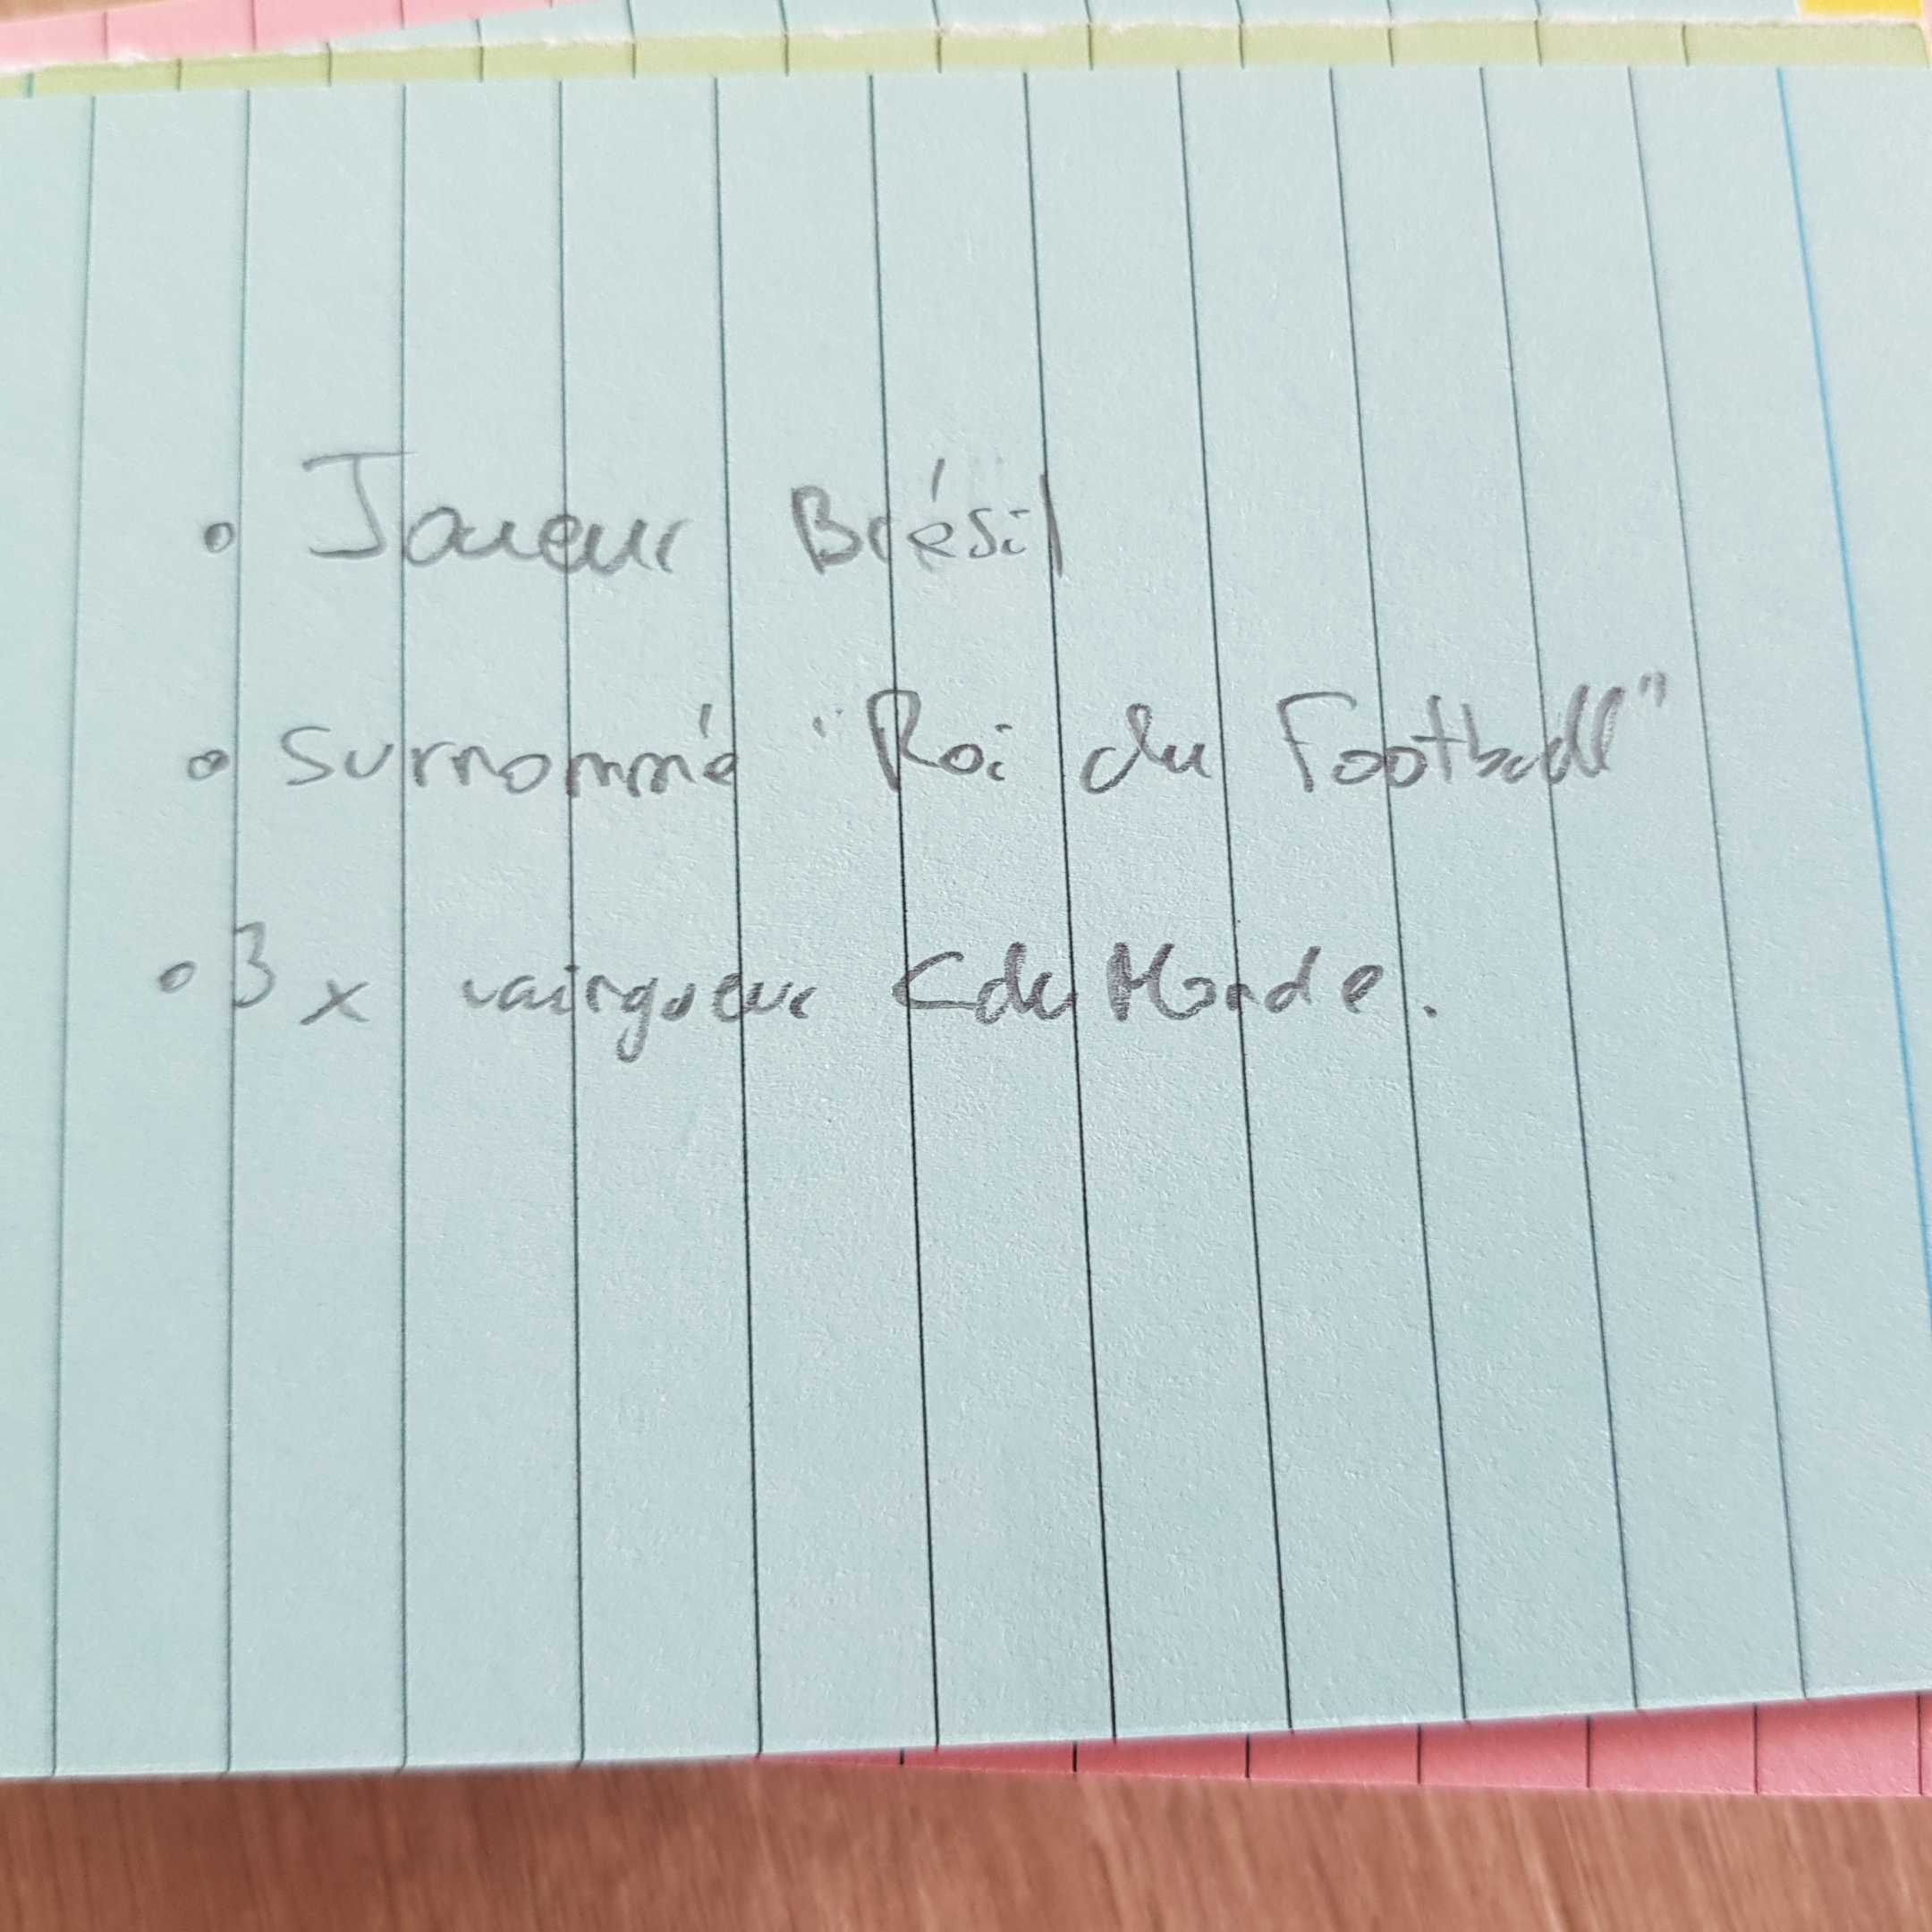 • Joueur Brésil
• Surnommé "Roi du Football"
• 3 x vainqueur C du Monde.